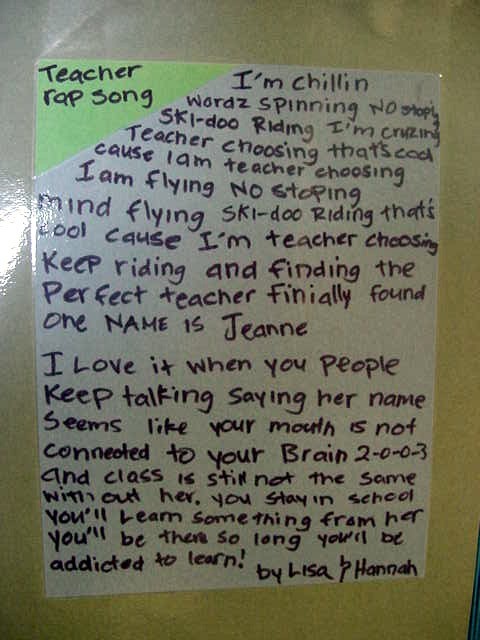 Teacher
rap song
I'm chillin
Wordz spinning No stoping
SKI-doo Riding I'm cruzing
Teacher choosing that's cool
cause I am teacher choosing
I am flying No stoping
mind flying SKI-doo Riding that's
cool cause I'm teacher choosing
Keep riding and finding the
Perfect teacher finially found
one NAME IS Jeanne
I Love it when you people
Keep talking saying her name
Seems like your mouth is not
connected to your Brain 2-0-0-3
and class is still not the same
without her. you stay in school
you'll Learn something from her
you'll be there so long you'll be
addicted to learn!
by Lisa & Hannah